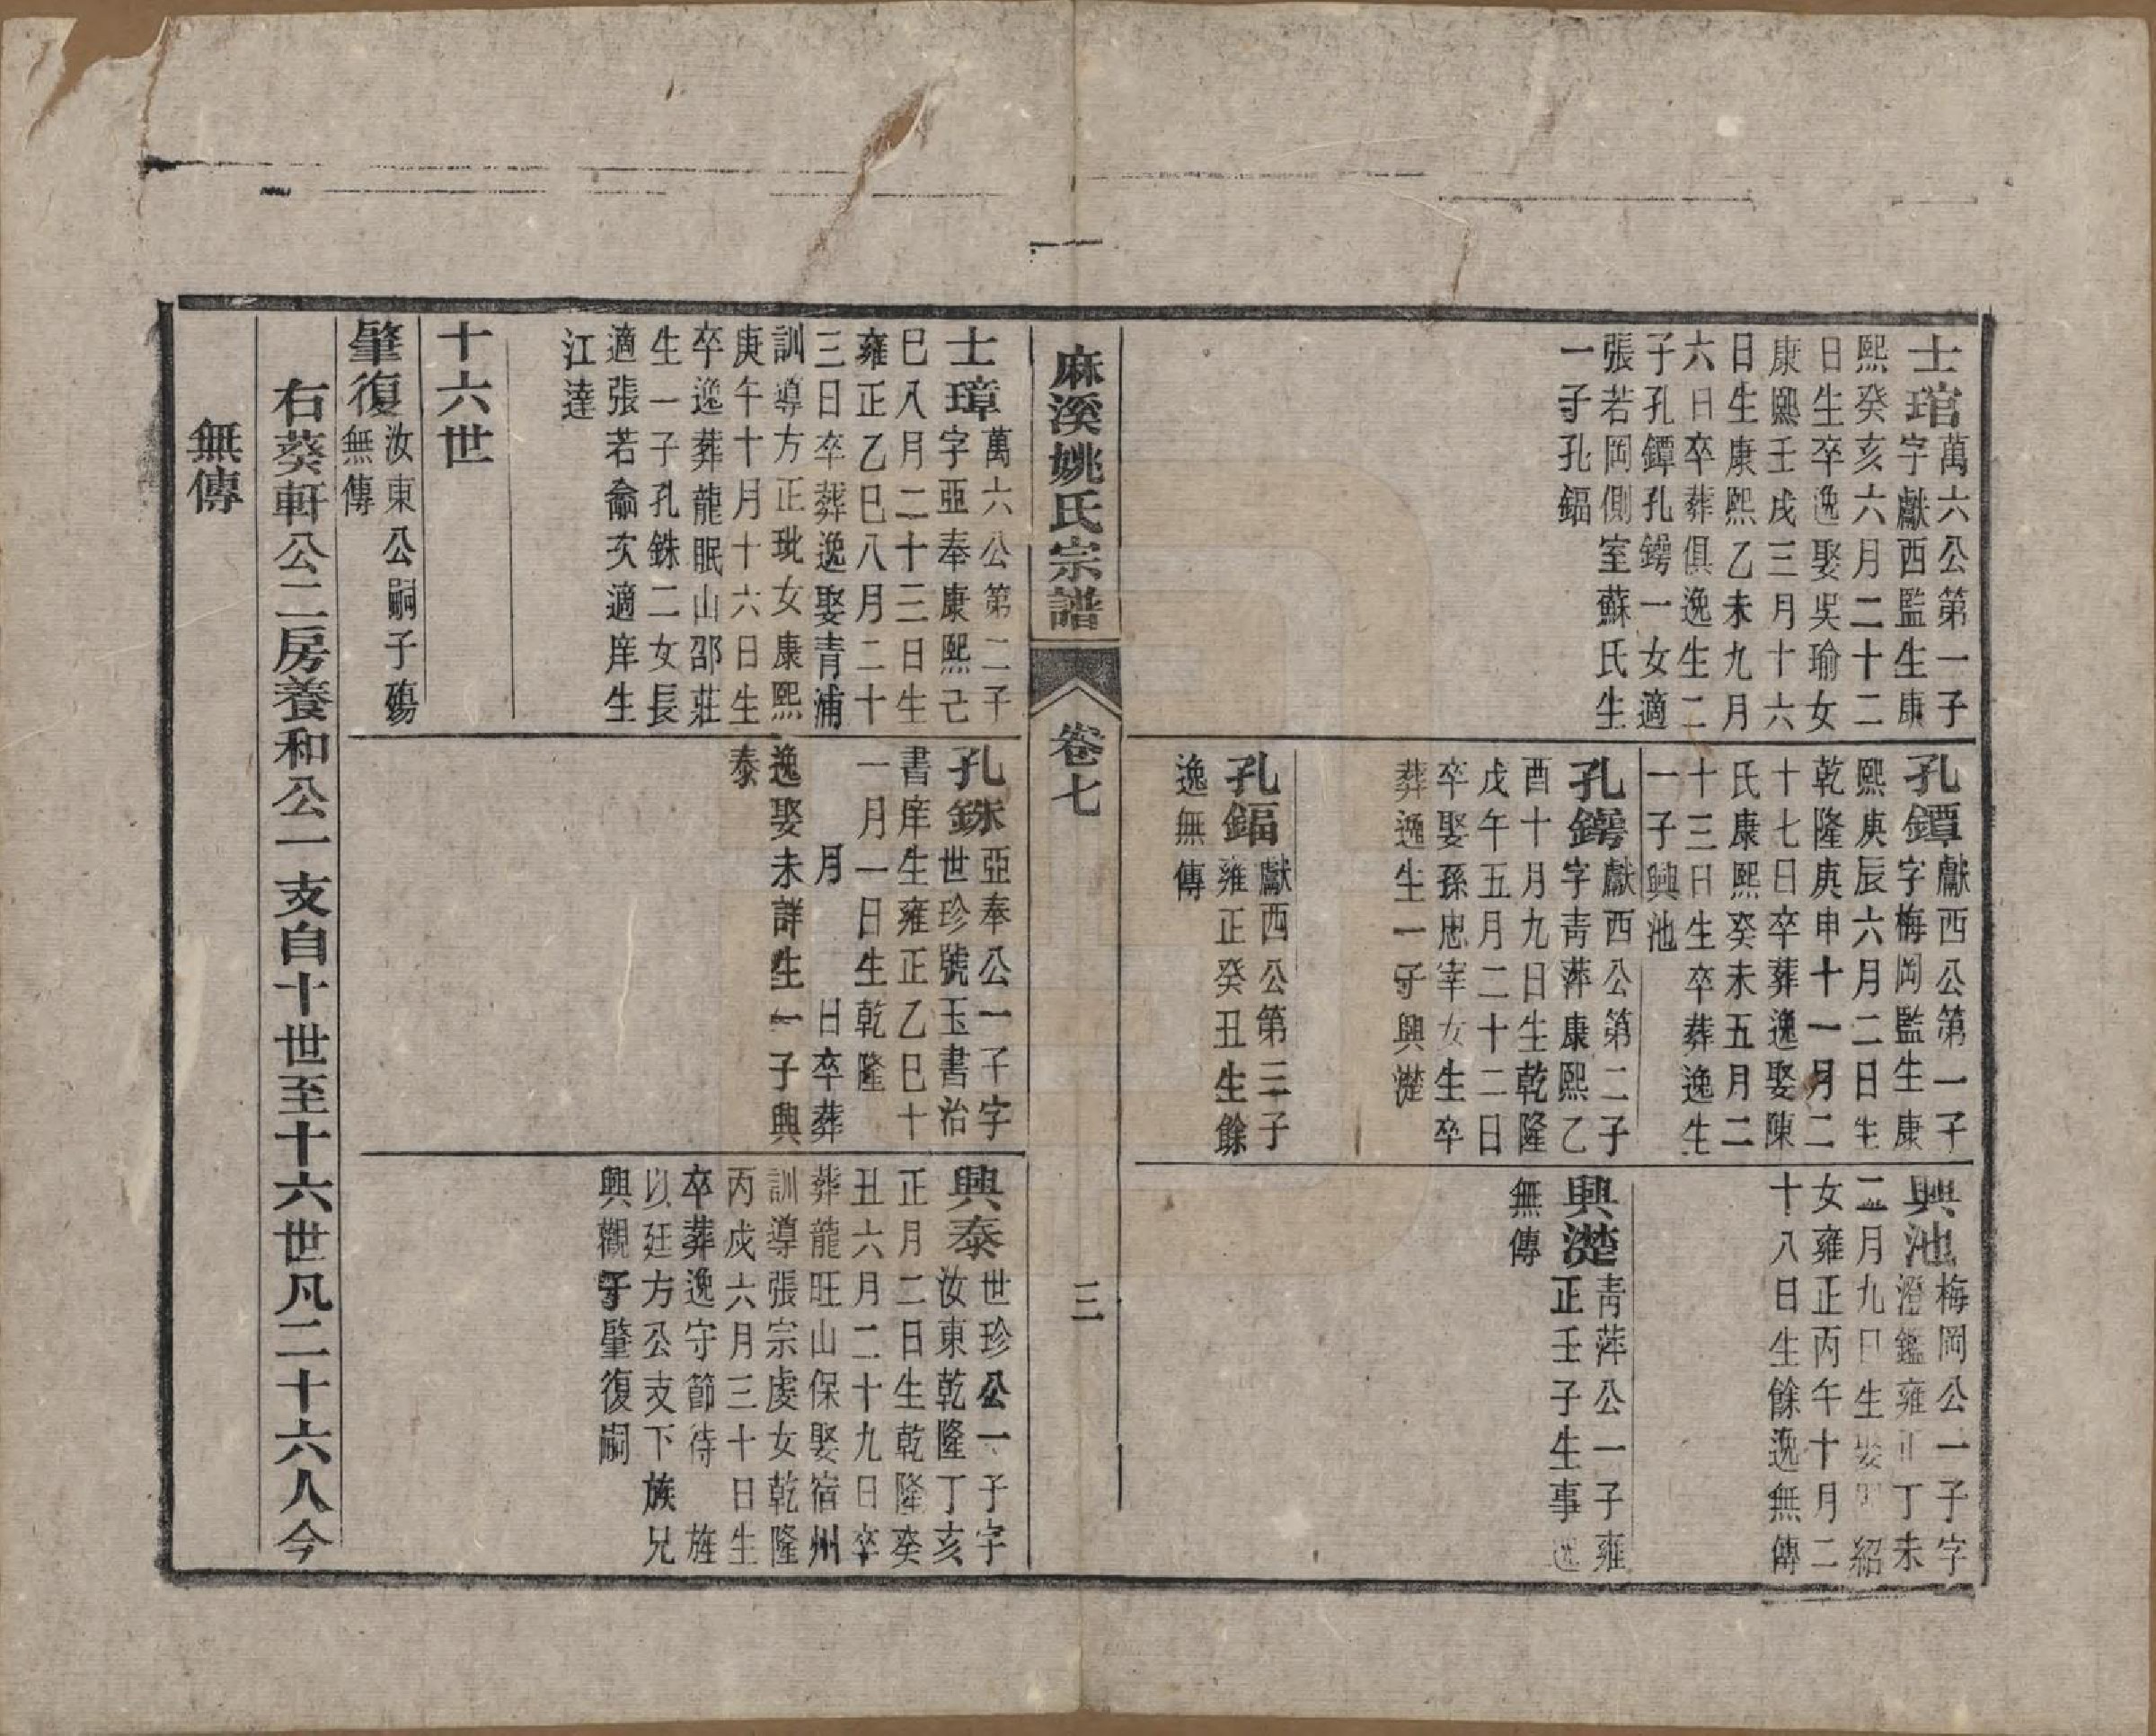 士琯萬六公第一子
字獻西監生康
熙癸亥六月二十二
日生卒逸娶吳瑜女
康熙壬戌三月十六
日生康熙乙未九月
六日卒葬俱逸生二
子孔鐔孔鍔一女適
張若岡側室蘇氏生
一子孔鍢
孔鐔獻西公第一子
字梅岡監生康
熙庚辰六月二日生
乾隆庚申十一月二
十七日卒葬逸娶陳
氏康熙癸未五月二
十三日生卒葬逸生
一子興池
孔鍔獻西公第二子
字青萍康熙乙
酉十月九日生乾隆
戊午五月二十二日
卒娶孫思宰女生卒
葬逸生一子興濋
孔鍢獻西公第三子
雍正癸丑生餘
逸無傳
興池梅岡公一子字
澄鑑雍正丁未
二月九日生娶 紹
女雍正丙午十月二
十八日生餘逸無傳
興濋青萍公一子雍
正壬子生事逸
無傳
麻溪姚氏宗譜
卷七
三
士璋萬六公第二子
字亞奉康熙己
巳八月二十三日生
雍正乙巳八月二十
三日卒葬逸娶青浦
訓導方正玭女康熙
庚午十月十六日生
卒逸葬龍眠山邵莊
生一子孔銖二女長
適張若龠次適庠生
江達
孔銖亞奉公一子字
世珍號玉書治
書庠生雍正乙巳十
一月一日生乾隆
月 日卒葬
逸娶未詳生一子興
泰
興泰世珍公一子字
汝東乾隆丁亥
正月二日生乾隆癸
丑六月二十九日卒
葬龍旺山保娶宿州
訓導張宗虔女乾隆
丙戌六月三十日生
卒葬逸守節待 旌
以廷方公支下族兄
興觀子肇復嗣
十六世
肇復汝東公嗣子殤
無傳
右葵軒公二房養和公一支自十世至十六世凡二十六人今
無傳